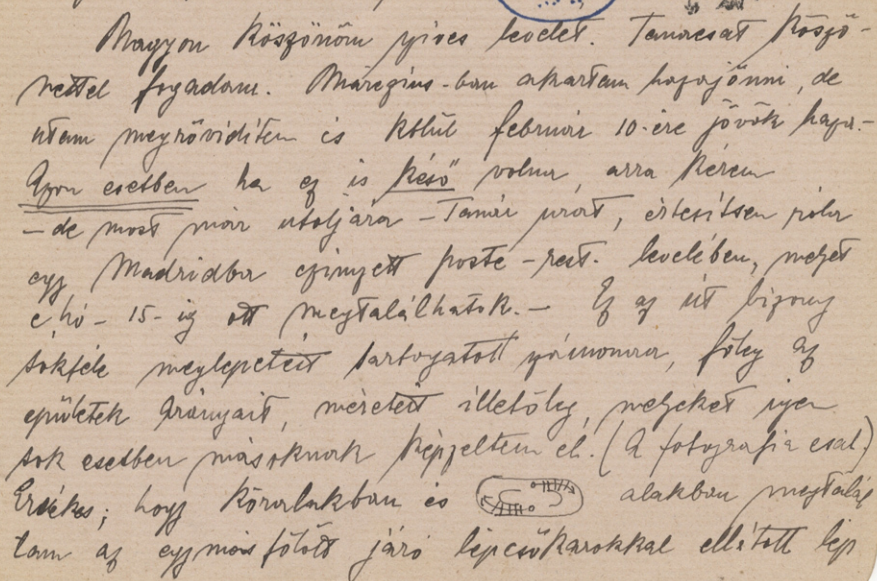 Nagyon köszönöm szives levelét. Tanácsát köszö-
nettel fogadom. Március-ban akartam hazajönni, de
utam megrövidítem és kblül február 10-ére jövök haza.-
Azon esetben ha ez is késő volna, arra kérem
– de most már utoljára – Tanár urat, értesítsen róla
egy Madridba czimzett poste-rest. levelében, melyet
e hó - 15-ig ott megtalálhatok. – Ez az út bizony
sokféle meglepetést tartogatott számomra, főleg az
épületek arányait, méreteit illetőleg, melyeket igen
sok esetben másoknak képzeltem el. (A fotografia csal.)
Érdekes; hogy köralakban és alakban megtalál
tam az egymás fölött járó lépcsőkarokkal ellátott lép